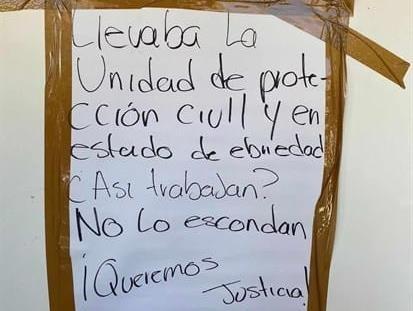 Llevaba La
Unidad de prote-
cción civil y en
estado de ebriedad
¿Asi trabajan?
No lo escondan
¡Queremos
Justicia!